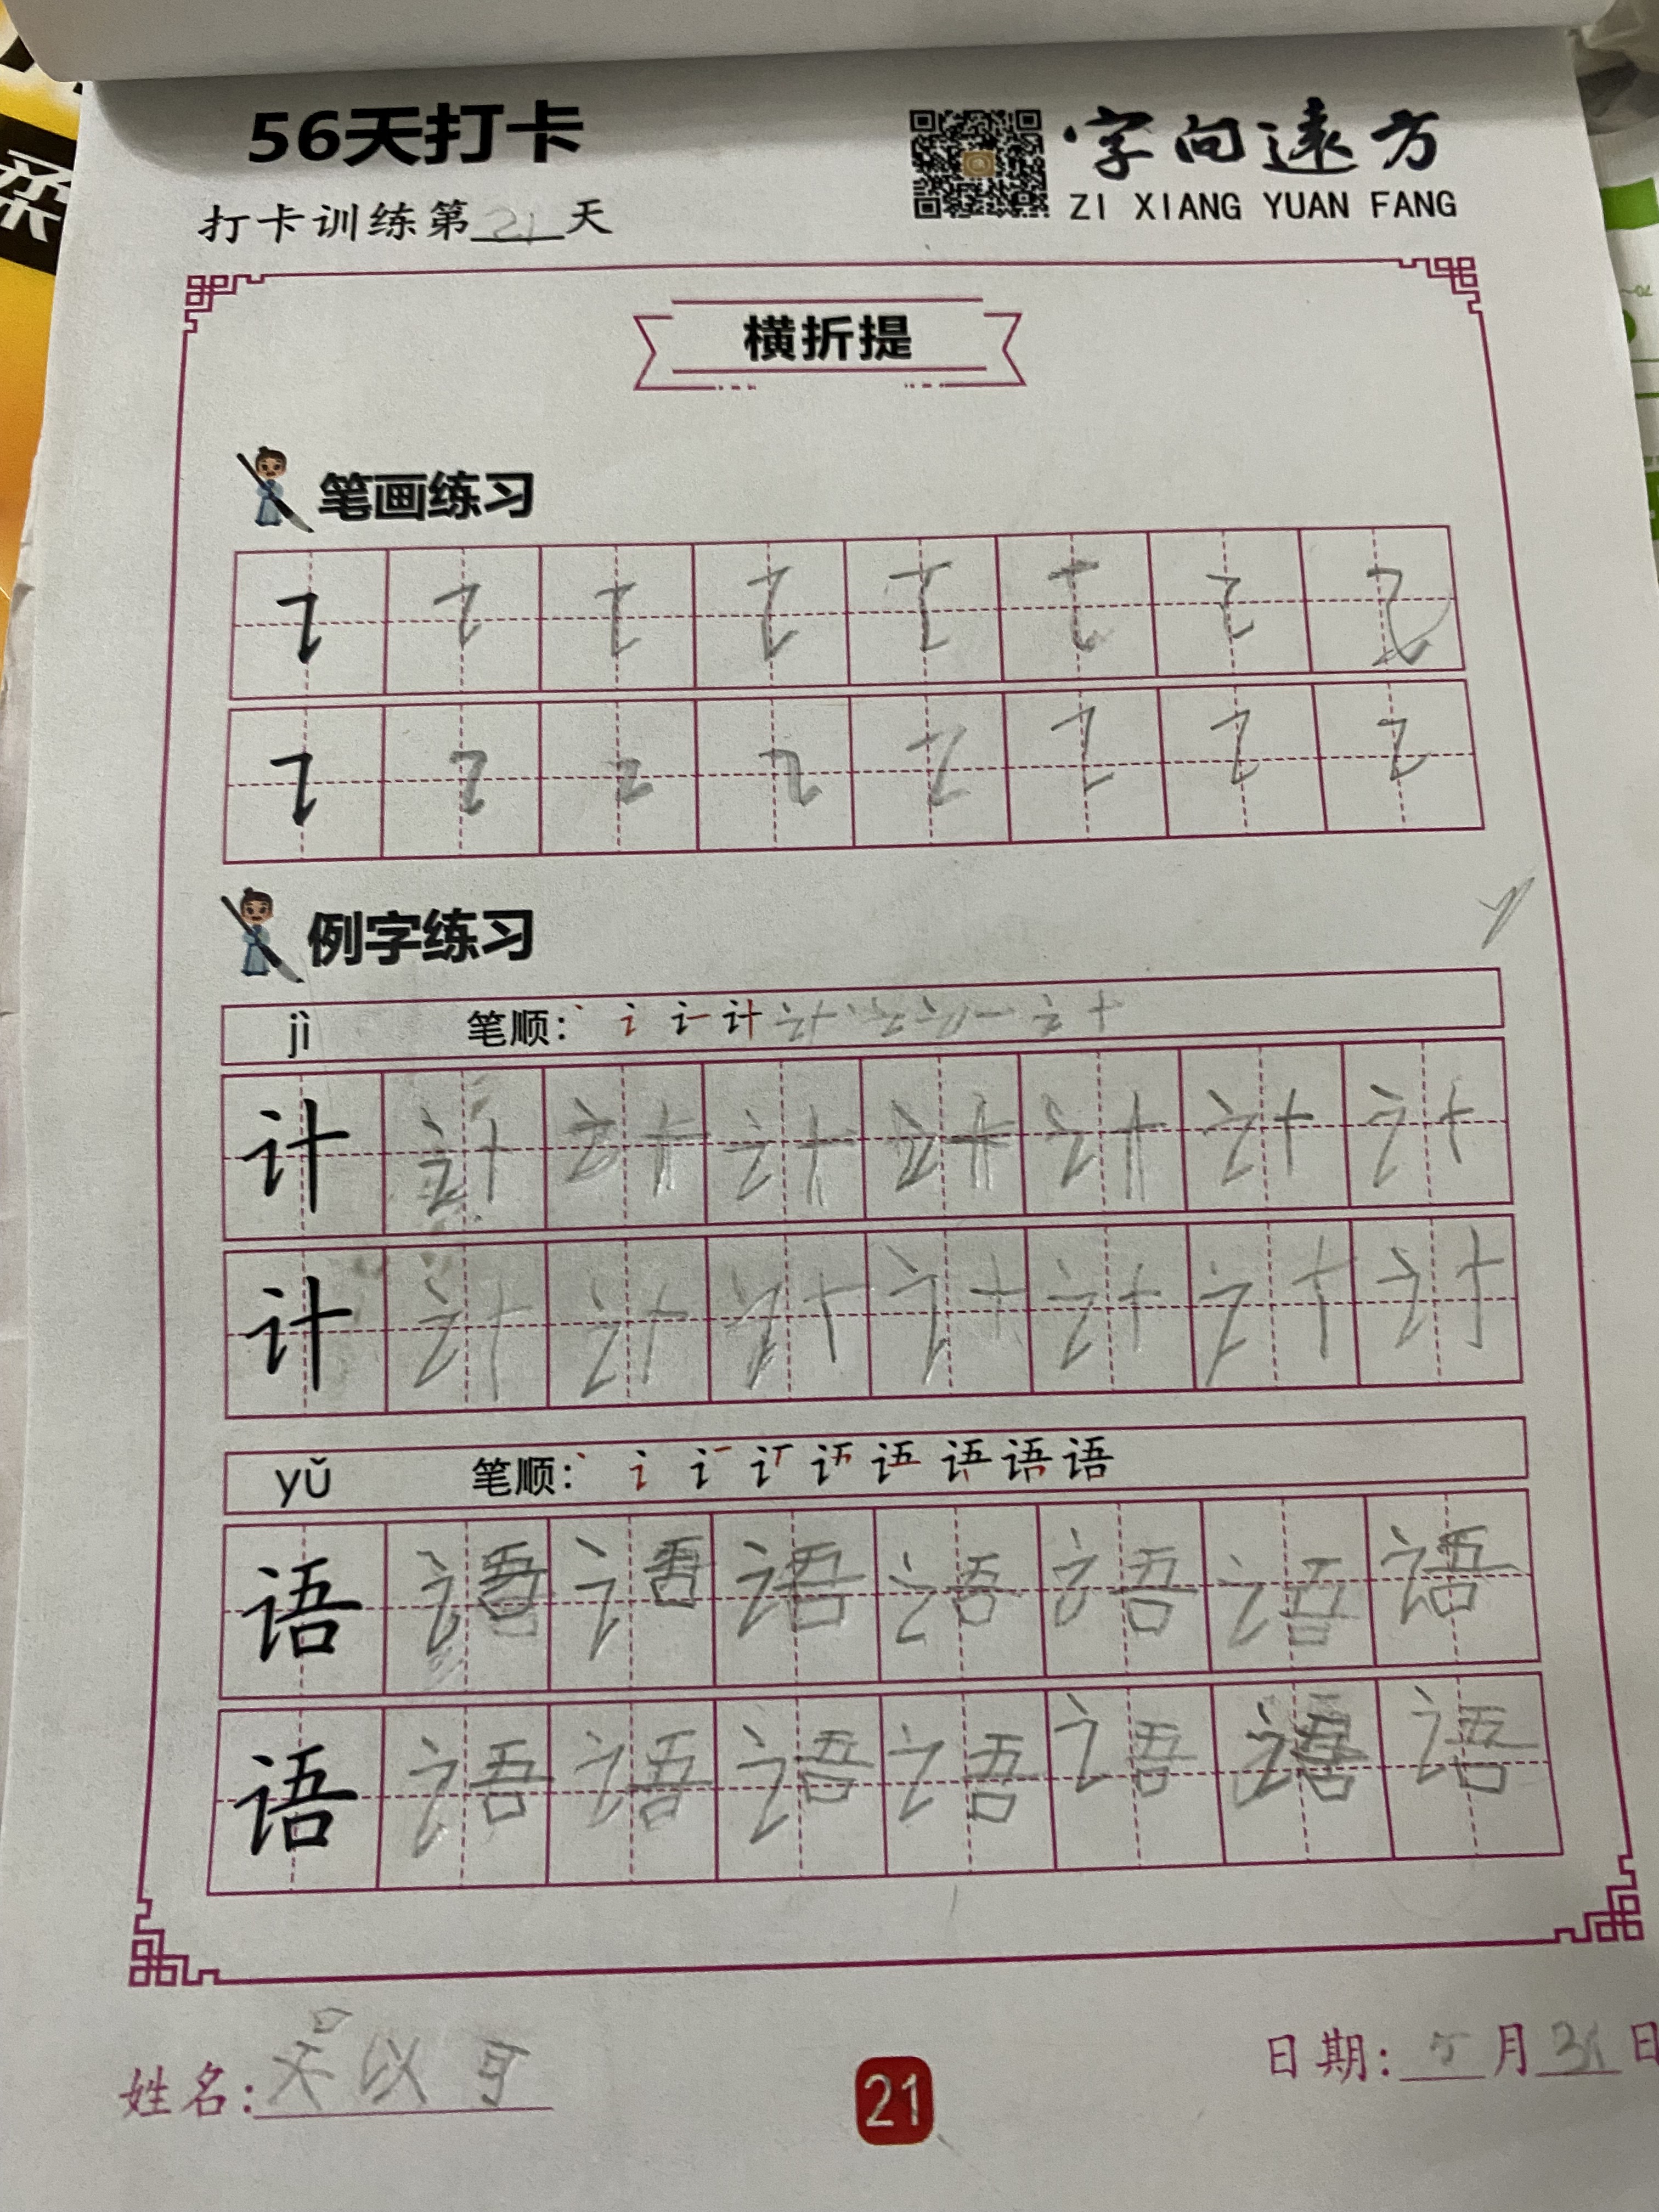 56天打卡
字向遠方
ZI XIANG YUAN FANG
打卡训练第21天
横折提
笔画练习
例字练习
jì 笔顺:
计 计 计 计 计 计 计 计
计 计 计 计 计 计 计 计
yǔ 笔顺:
语 语 语 语 语 语 语 语
语 语 语 语 语 语 语 语
姓名:吴以可
21
日期:5月31日